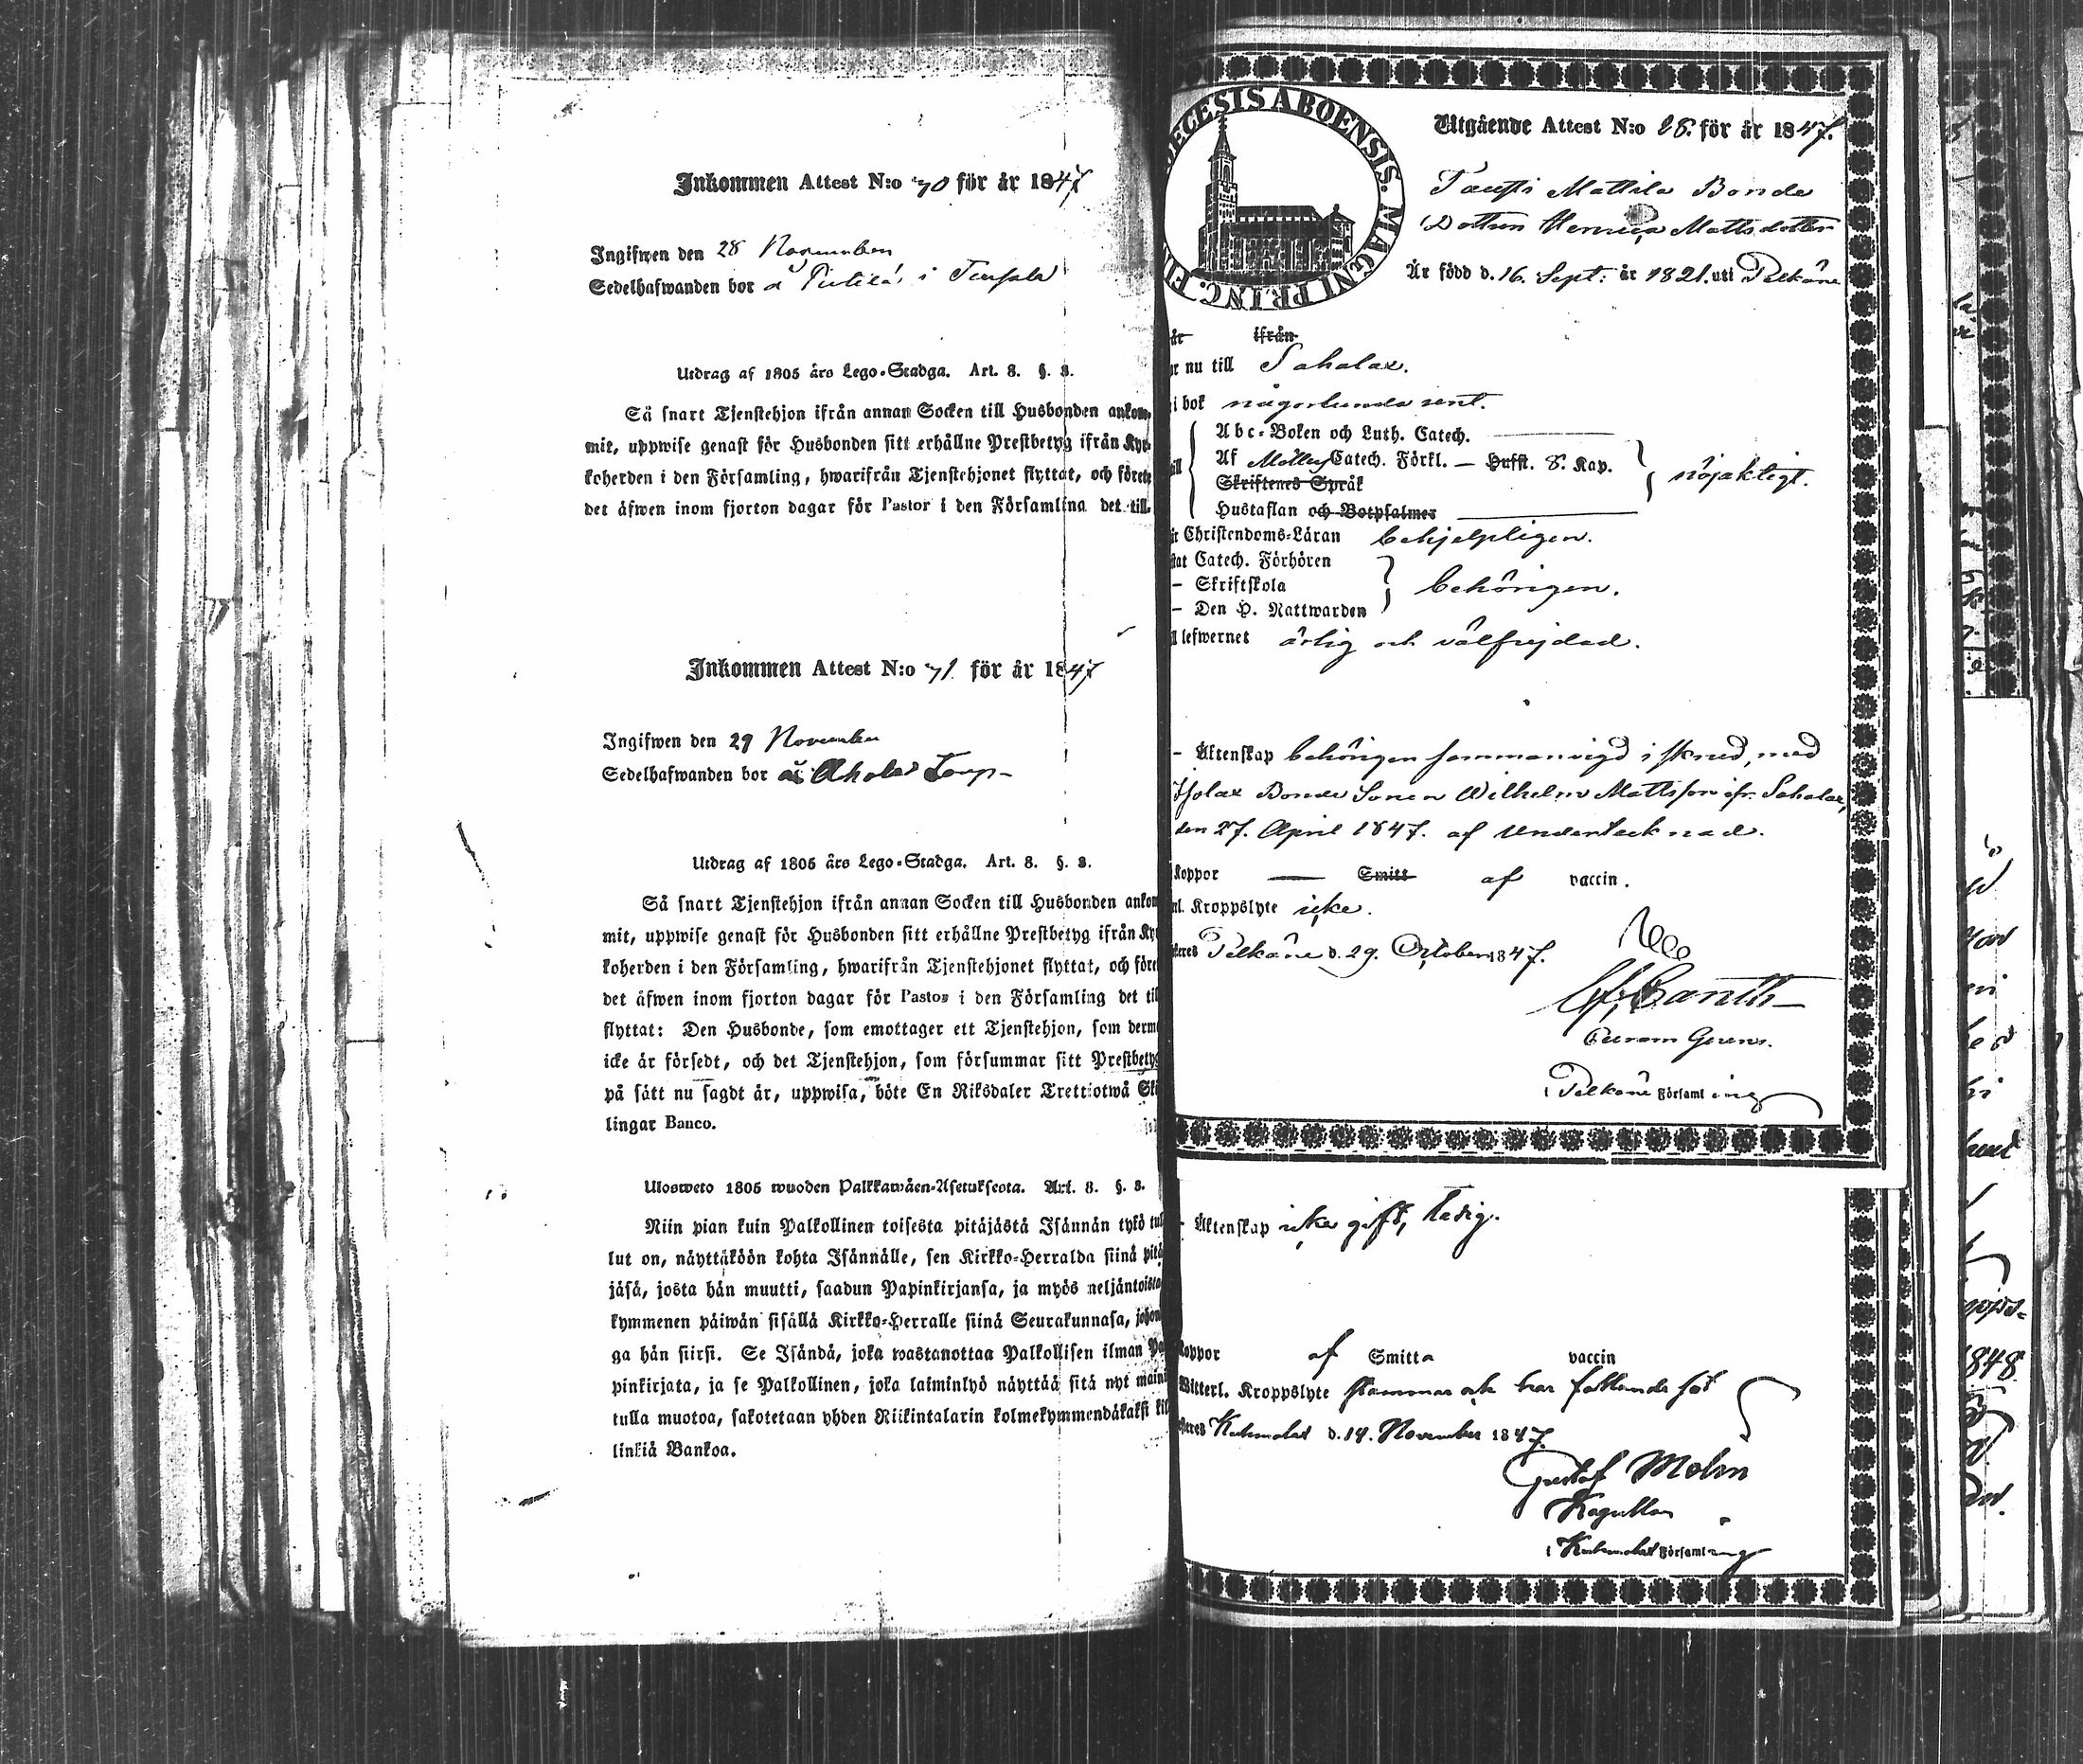 Inkommen Attest N:o 70 för år 1847
Ingifwen den 28 November
Sedelhafwanden bor å i
Utdrag af 1805 års Lego-Stadga. Art. 8. §. 8.
Så snart Tjenstehjon ifrån annan Socken till Husbonden ankom-
mit, uppwise genast för Husbonden sitt erhållne Prestbetyg ifrån Kyr-
koherden i den Församling, hwarifrån Tjenstehjonet flyttat, och förete
det äfwen inom fjorton dagar för Pastor i den Församling det till-
Inkommen Attest N:o 71 för år 1847
Ingifwen den 29 November
Sedelhafwanden bor å Ahola
Utdrag af 1805 års Lego-Stadga. Art. 8. §. 8.
Så snart Tjenstehjon ifrån annan Socken till Husbonden ankom
mit, uppwise genast för Husbonden sitt erhållne Prestbetyg ifrån Ky
koherden i den Församling, hwarifrån Tjenstehjonet flyttat, och före
det äfwen inom fjorton dagar för Pastor i den Församling det til
flyttat: Den Husbonde, som emottager ett Tjenstehjon, som derm
icke är försedt, och det Tjenstehjon, som försummar sitt Prestbetyg
på sätt nu sagdt är, uppwisa, böte En Riksdaler Trettiotwå Ski
lingar Banco.
Ulosweto 1805 wuoden Palkkawäen-Asetuksesta. Art. 8. §. 8.
Niin pian kuin Palkollinen toisesta pitäjästä Isännän tykö tul
lut on, näyttäköön kohta Isännälle, sen Kirkko-Herralda siinä pitä
jäsä, josta hän muutti, saadun Papinkirjansa, ja myös neljäntoista
kymmenen päiwän sisällä Kirkko-Herralle siinä Seurakunnasa, johon
ga hän siirsi. Se Isändä, joka wastanottaa Palkollisen ilman Pa
pinkirjata, ja se Palkollinen, joka laiminlyö näyttää sitä nyt maini
tulla muotoa, sakotetaan yhden Riikintalarin kolmekymmendäkaksi kil
linkiä Bankoa.
DIOECESIS ABOENSIS. MAGNI PRINC. FI
Utgående Attest N:o 28. för år 1847.
Mattila Bonde
Dottren Mattsdotter
Är född d. 16. Sept. år 1821. uti Pelkäne
är ifrån
r nu till Sahalax.
i bok någorlunda rent.
Abc-Boken och Luth. Catech.
Af Möllers Catech. Förkl. — Husst. 8. Kap.
Skriftenes Språk
Hustaflan och Botpsalmer
nöjaktigt.
Christendoms-Läran behjelpligen.
tat Catech. Förhören
— Skriftskola
— Den H. Nattwarden
behörigen.
ll lefwernet ärlig och välfrejdad.
— Äktenskap behörigen sammanvigd i skrud, med
Bonde Sonen Wilhelm Mattsson ifr. Sahalax,
den 27. April 1847. af Undertecknad.
Koppor — Smitt af vaccin.
l. Kroppslyte icke.
teres Pelkäne d. 29. October 1847.
Curam Gerens.
i Pelkäne Församling
— Äktenskap icke gift, ledig.
Koppor af Smitta vaccin
Witterl. Kroppslyte stammar och har fallande sot
teres Kuhmalax d. 14. November 1847.
Gustaf Molin
i Kuhmalax Församling
1848